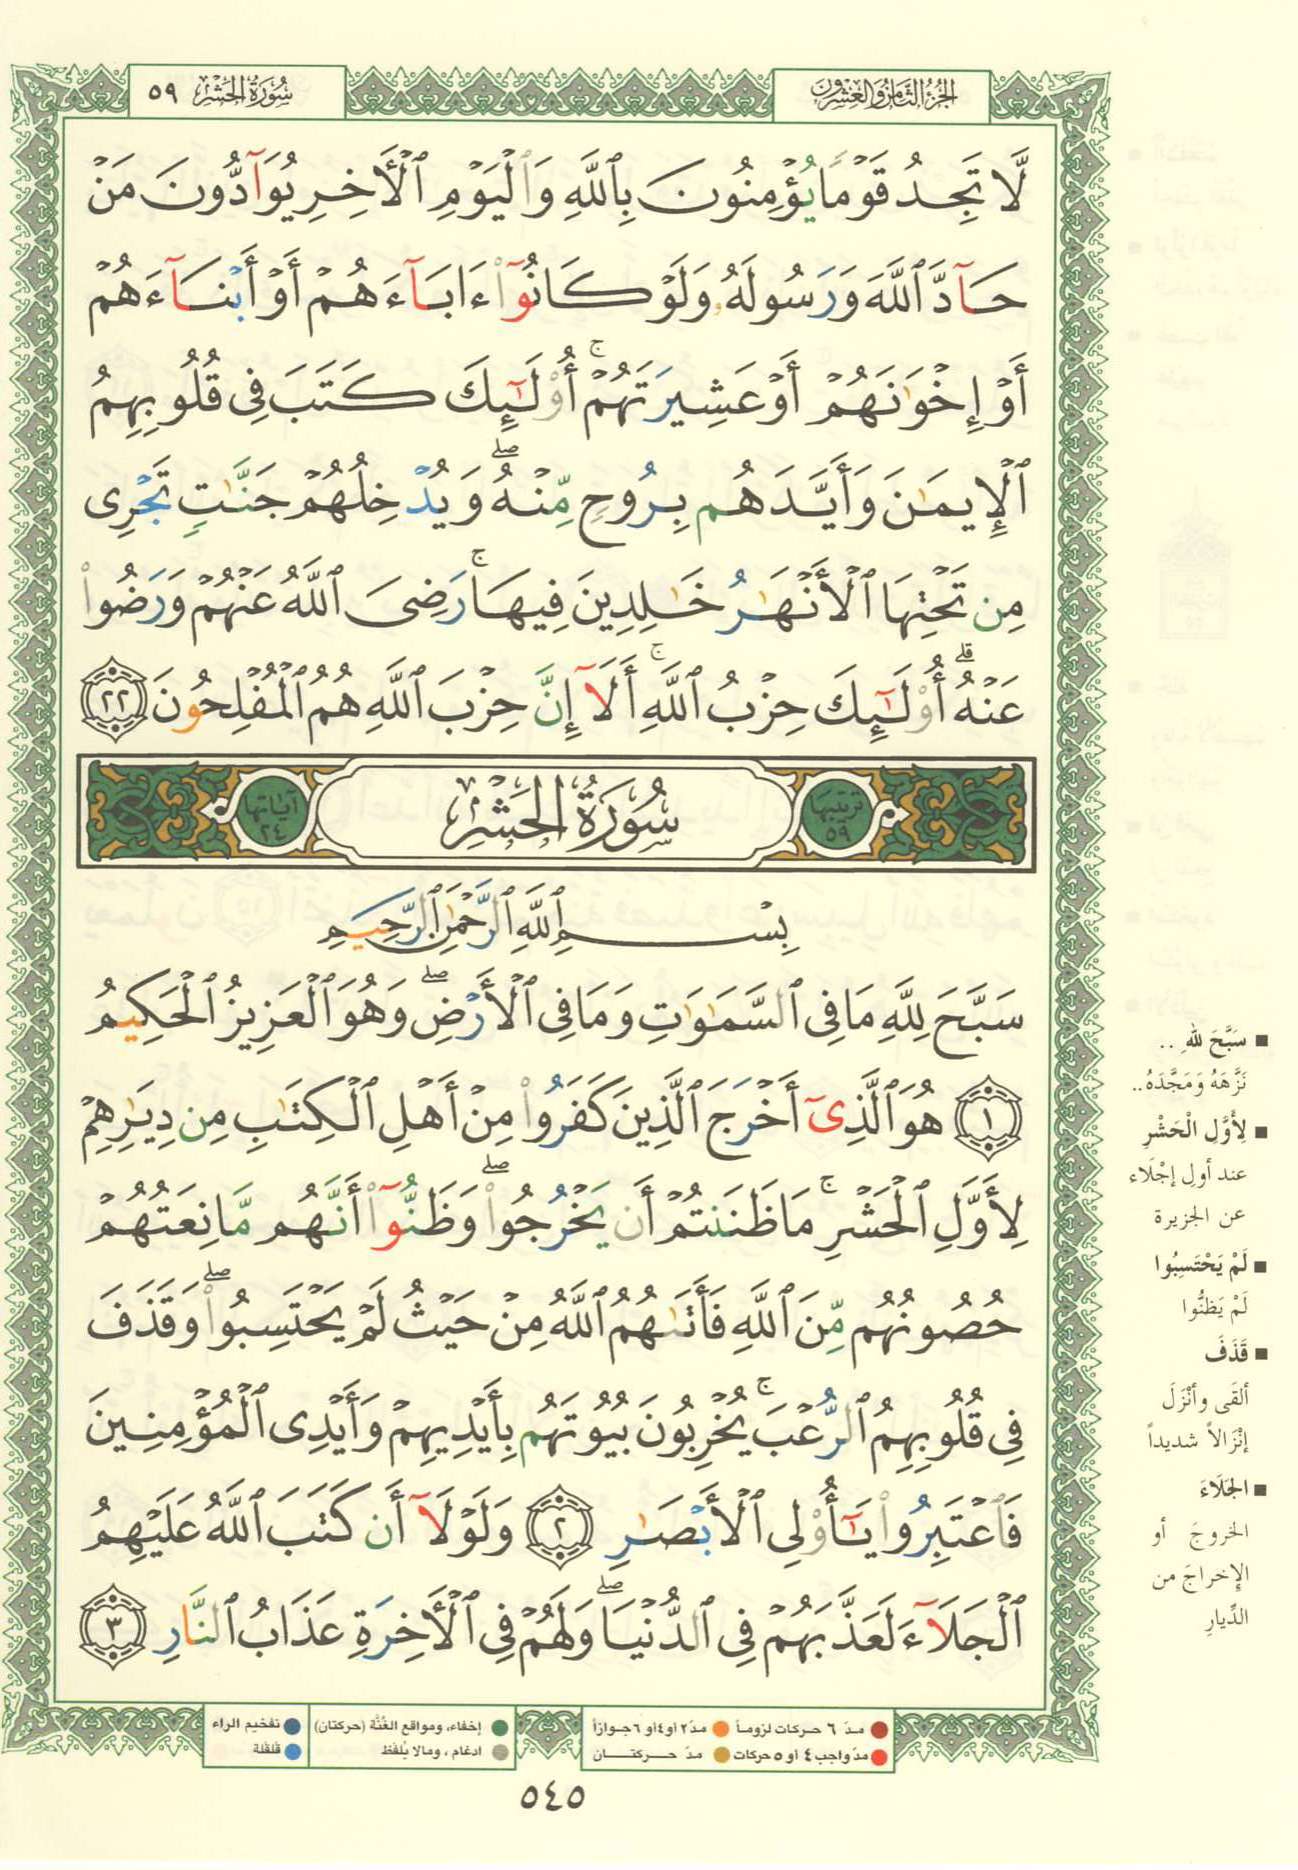 الجزء الثامن والعشرون
سورة الحشر ٥٩
لَّا تَجِدُ قَوْمًا يُؤْمِنُونَ بِٱللَّهِ وَٱلْيَوْمِ ٱلْأَخِرِ يُوَآدُّونَ مَنْ
حَآدَّ ٱللَّهَ وَرَسُولَهُۥ وَلَوْ كَانُوٓا۟ ءَابَآءَهُمْ أَوْ أَبْنَآءَهُمْ
أَوْ إِخْوَٰنَهُمْ أَوْ عَشِيرَتَهُمْ ۚ أُو۟لَٰٓئِكَ كَتَبَ فِى قُلُوبِهِمُ
ٱلْإِيمَٰنَ وَأَيَّدَهُم بِرُوحٍ مِّنْهُ ۖ وَيُدْخِلُهُمْ جَنَّٰتٍ تَجْرِى
مِن تَحْتِهَا ٱلْأَنْهَٰرُ خَٰلِدِينَ فِيهَا ۚ رَضِىَ ٱللَّهُ عَنْهُمْ وَرَضُوا۟
عَنْهُ ۚ أُو۟لَٰٓئِكَ حِزْبُ ٱللَّهِ ۚ أَلَآ إِنَّ حِزْبَ ٱللَّهِ هُمُ ٱلْمُفْلِحُونَ ٢٢
ترتيبها ٥٩ سُورَةُ الحَشْرِ آياتها ٢٤
بِسْمِ ٱللَّهِ ٱلرَّحْمَٰنِ ٱلرَّحِيمِ
سَبَّحَ لِلَّهِ مَا فِى ٱلسَّمَٰوَٰتِ وَمَا فِى ٱلْأَرْضِ ۖ وَهُوَ ٱلْعَزِيزُ ٱلْحَكِيمُ
١ هُوَ ٱلَّذِىٓ أَخْرَجَ ٱلَّذِينَ كَفَرُوا۟ مِنْ أَهْلِ ٱلْكِتَٰبِ مِن دِيَٰرِهِمْ
لِأَوَّلِ ٱلْحَشْرِ ۚ مَا ظَنَنتُمْ أَن يَخْرُجُوا۟ ۖ وَظَنُّوٓا۟ أَنَّهُم مَّانِعَتُهُمْ
حُصُونُهُم مِّنَ ٱللَّهِ فَأَتَىٰهُمُ ٱللَّهُ مِنْ حَيْثُ لَمْ يَحْتَسِبُوا۟ ۖ وَقَذَفَ
فِى قُلُوبِهِمُ ٱلرُّعْبَ ۚ يُخْرِبُونَ بُيُوتَهُم بِأَيْدِيهِمْ وَأَيْدِى ٱلْمُؤْمِنِينَ
فَٱعْتَبِرُوا۟ يَٰٓأُو۟لِى ٱلْأَبْصَٰرِ ٢ وَلَوْلَآ أَن كَتَبَ ٱللَّهُ عَلَيْهِمُ
ٱلْجَلَآءَ لَعَذَّبَهُمْ فِى ٱلدُّنْيَا ۖ وَلَهُمْ فِى ٱلْأَخِرَةِ عَذَابُ ٱلنَّارِ ٣
■ سَبَّحَ لِلّهِ ..
نَزَّهَهُ وَمَجَّدَهُ ..
■ لِأَوَّلِ الْحَشْرِ
عند أولِ إجْلَاء
عن الجزيرة
■ لَمْ يَحْتَسِبُوا
لَمْ يَظنُّوا
■ قَذَفَ
ألقَى وأنْزَلَ
إنْزَالاً شديداً
■ الجَلَاءَ
الخروجَ أو
الإخراجَ من
الدِّيارِ
مدّ ٦ حركات لزوماً مدّ ٢ أو ٤ أو ٦ جوازاً
مدّ واجب ٤ أو ٥ حركات مدّ حركتان
إخفاء، ومواقع الغُنَّة (حركتان) تفخيم الراء
ادغام ، ومالا يُلفَظ قلقلة
٥٤٥